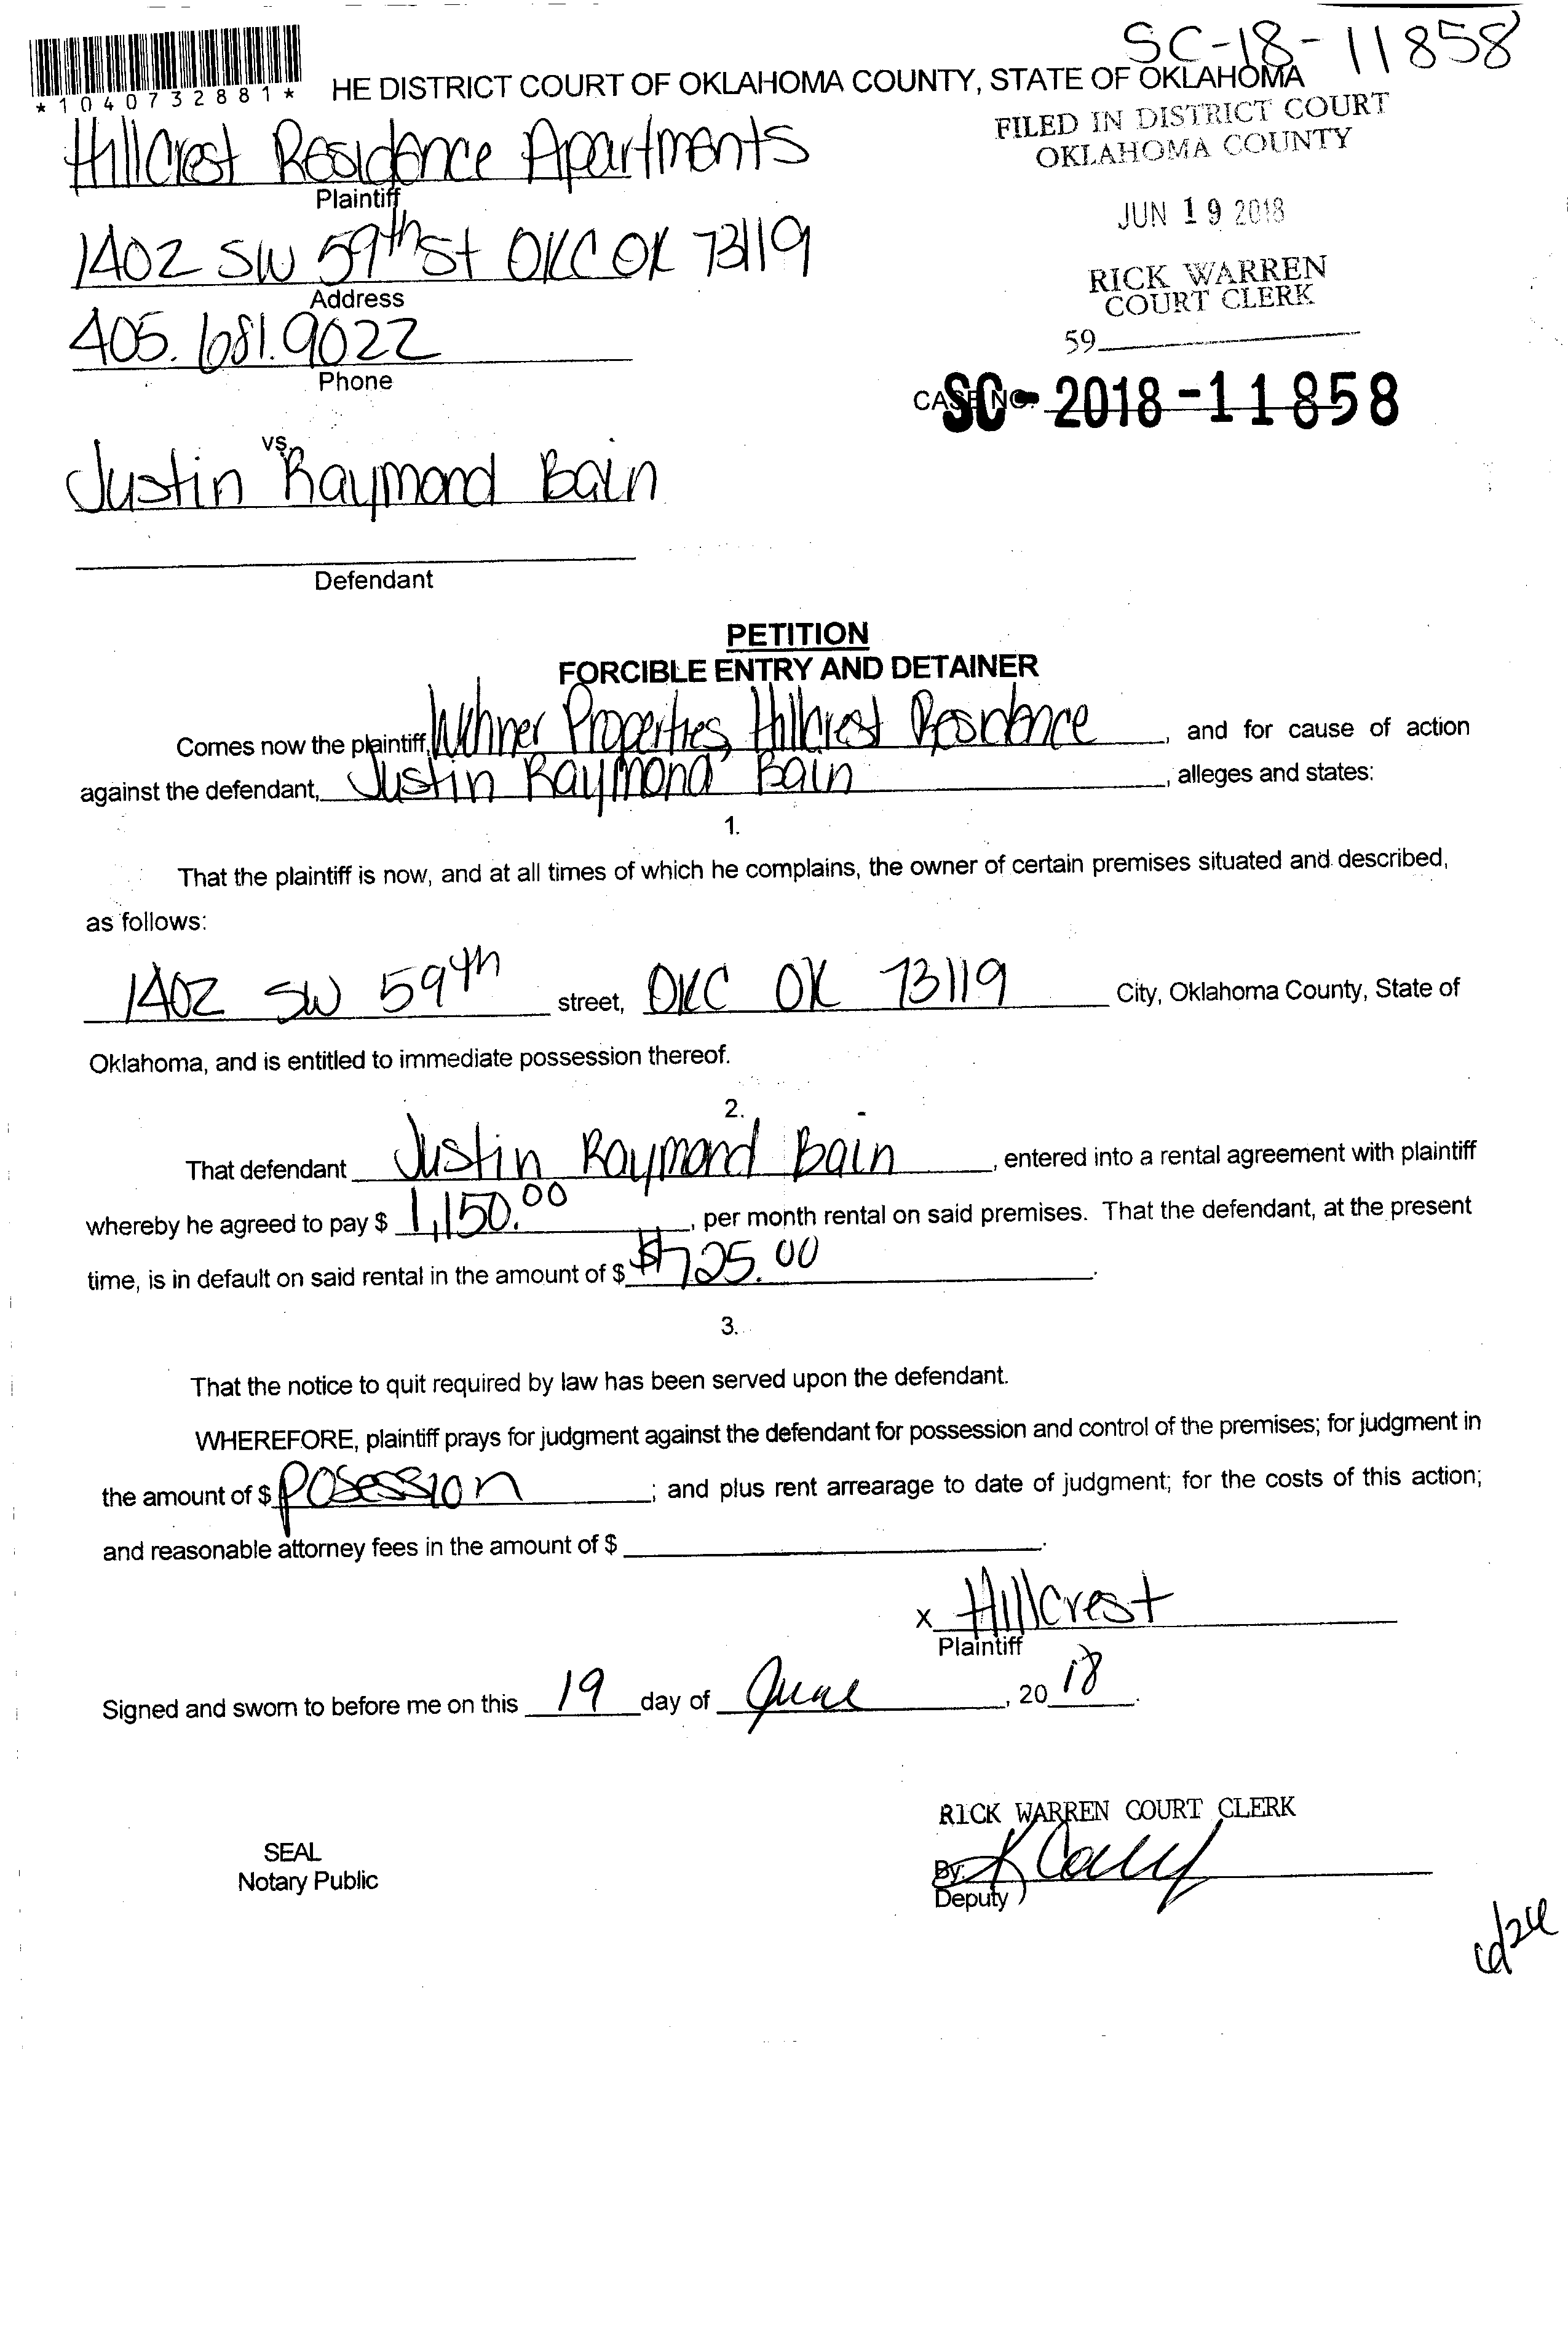 SC-18-11858
*1040732881*
HE DISTRICT COURT OF OKLAHOMA COUNTY, STATE OF OKLAHOMA
FILED IN DISTRICT COURT
OKLAHOMA COUNTY
Hillcrest Residence Apartments
Plaintiff
JUN 19 2018
1402 SW 59th St OKC OK 73119
Address
RICK WARREN
COURT CLERK
405.681.9022
Phone
59
CASE NO. SC-2018-11858
vs.
Justin Raymond Bain
Defendant
PETITION
FORCIBLE ENTRY AND DETAINER
Comes now the plaintiff, Properties, Hillcrest Residence, and for cause of action
against the defendant, Justin Raymond Bain, alleges and states:
1.
That the plaintiff is now, and at all times of which he complains, the owner of certain premises situated and described,
as follows:
1402 SW 59th street, OKC OK 73119 City, Oklahoma County, State of
Oklahoma, and is entitled to immediate possession thereof.
2.
That defendant Justin Raymond Bain, entered into a rental agreement with plaintiff
whereby he agreed to pay $ 1,150.00, per month rental on said premises. That the defendant, at the present
time, is in default on said rental in the amount of $ $725.00.
3.
That the notice to quit required by law has been served upon the defendant.
WHEREFORE, plaintiff prays for judgment against the defendant for possession and control of the premises; for judgment in
the amount of $ Posession; and plus rent arrearage to date of judgment; for the costs of this action;
and reasonable attorney fees in the amount of $ .
x Hillcrest
Plaintiff
Signed and sworn to before me on this 19 day of June, 20 18.
RICK WARREN COURT CLERK
SEAL
Notary Public
By:
Deputy